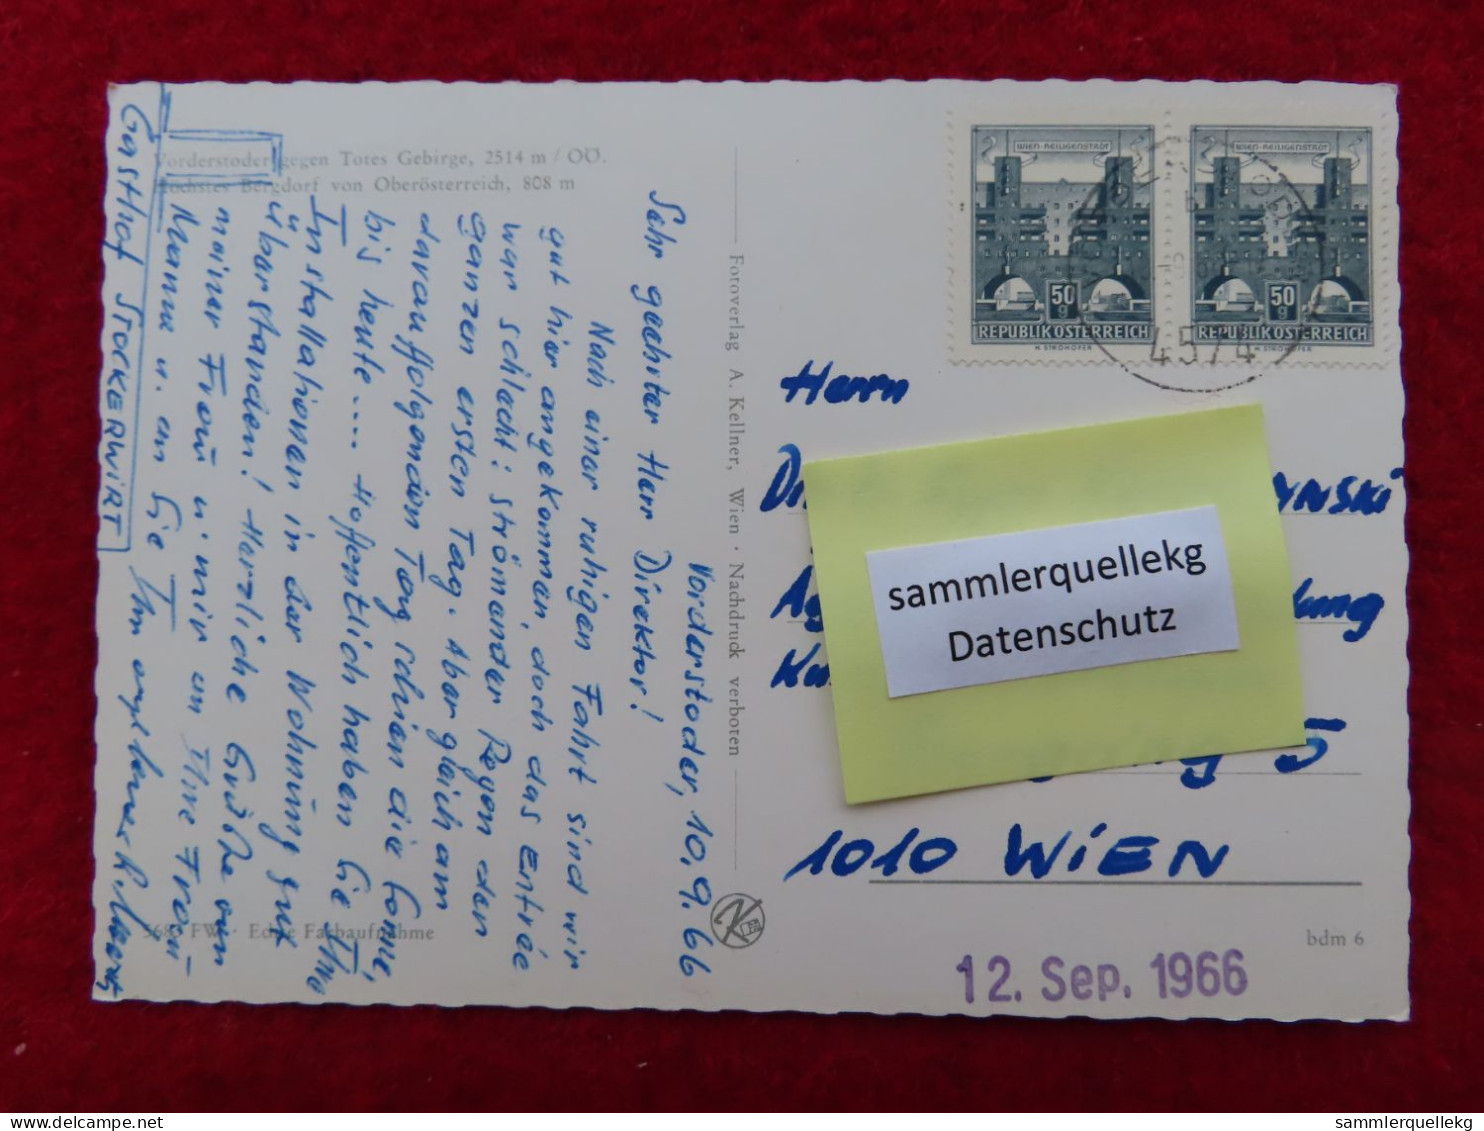 Vorderstoder gegen Totes Gebirge, 2514 m / OÖ.
Höchstes Bergdorf von Oberösterreich, 808 m
Gasthof STOCKERWIRT
Vorderstoder, 10. 9. 66
Sehr geehrter Herr Direktor!
Nach einer ruhigen Fahrt sind wir
gut hier angekommen, doch das Entrée
war schlecht: strömender Regen den
ganzen ersten Tag. Aber gleich am
darauffolgenden Tag schien die Sonne,
bis heute.... Hoffentlich haben Sie Ihre
Installationen in der Wohnung gut
überstanden! Herzliche Grüße von
meiner Frau u. mir an Ihre Frau
Mama u. an Sie Ihr
Fotoverlag A. Kellner, Wien · Nachdruck verboten
5680 FW · Echte Farbaufnahme
WIEN-HEILIGENSTADT
50
g
REPUBLIK ÖSTERREICH
H. STROHOFER
WIEN-HEILIGENSTADT
50
g
REPUBLIK ÖSTERREICH
H. STROHOFER
4574
Herrn
YNSKI
sammlerquellekg
Datenschutz
5
1010 WIEN
bdm 6
12. Sep. 1966
www.delcampe.net
sammlerquellekg